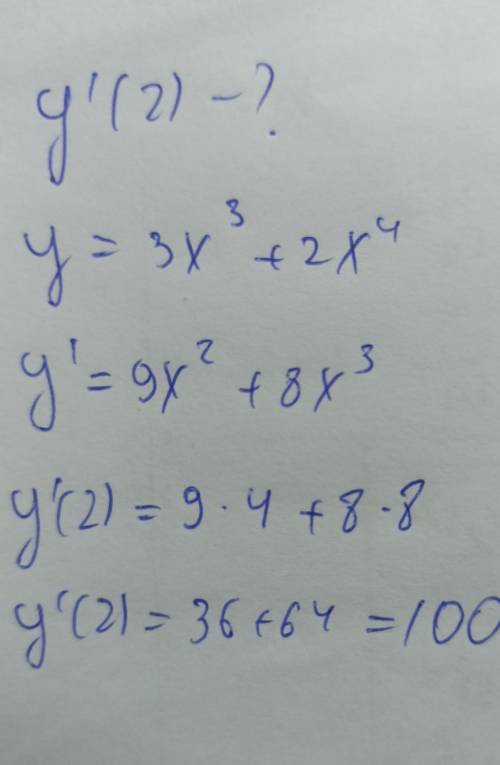 y'(2) - ?
y = 3x³ + 2x⁴
y' = 9x² + 8x³
y'(2) = 9 · 4 + 8 · 8
y'(2) = 36 + 64 = 100